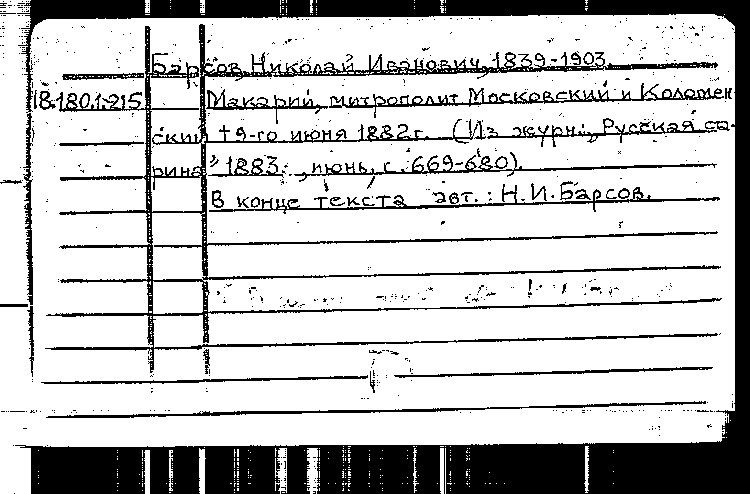 Барсов, Николай Иванович, 1839-1903.
18.180.1.215 Макарий, митрополит Московский и Коломен
ский †9-го июня 1882г. (Из журн.: „Русская ста-
рина" 1883. , июнь, с. 669-680).
В конце текста авт.: Н.И.Барсов.